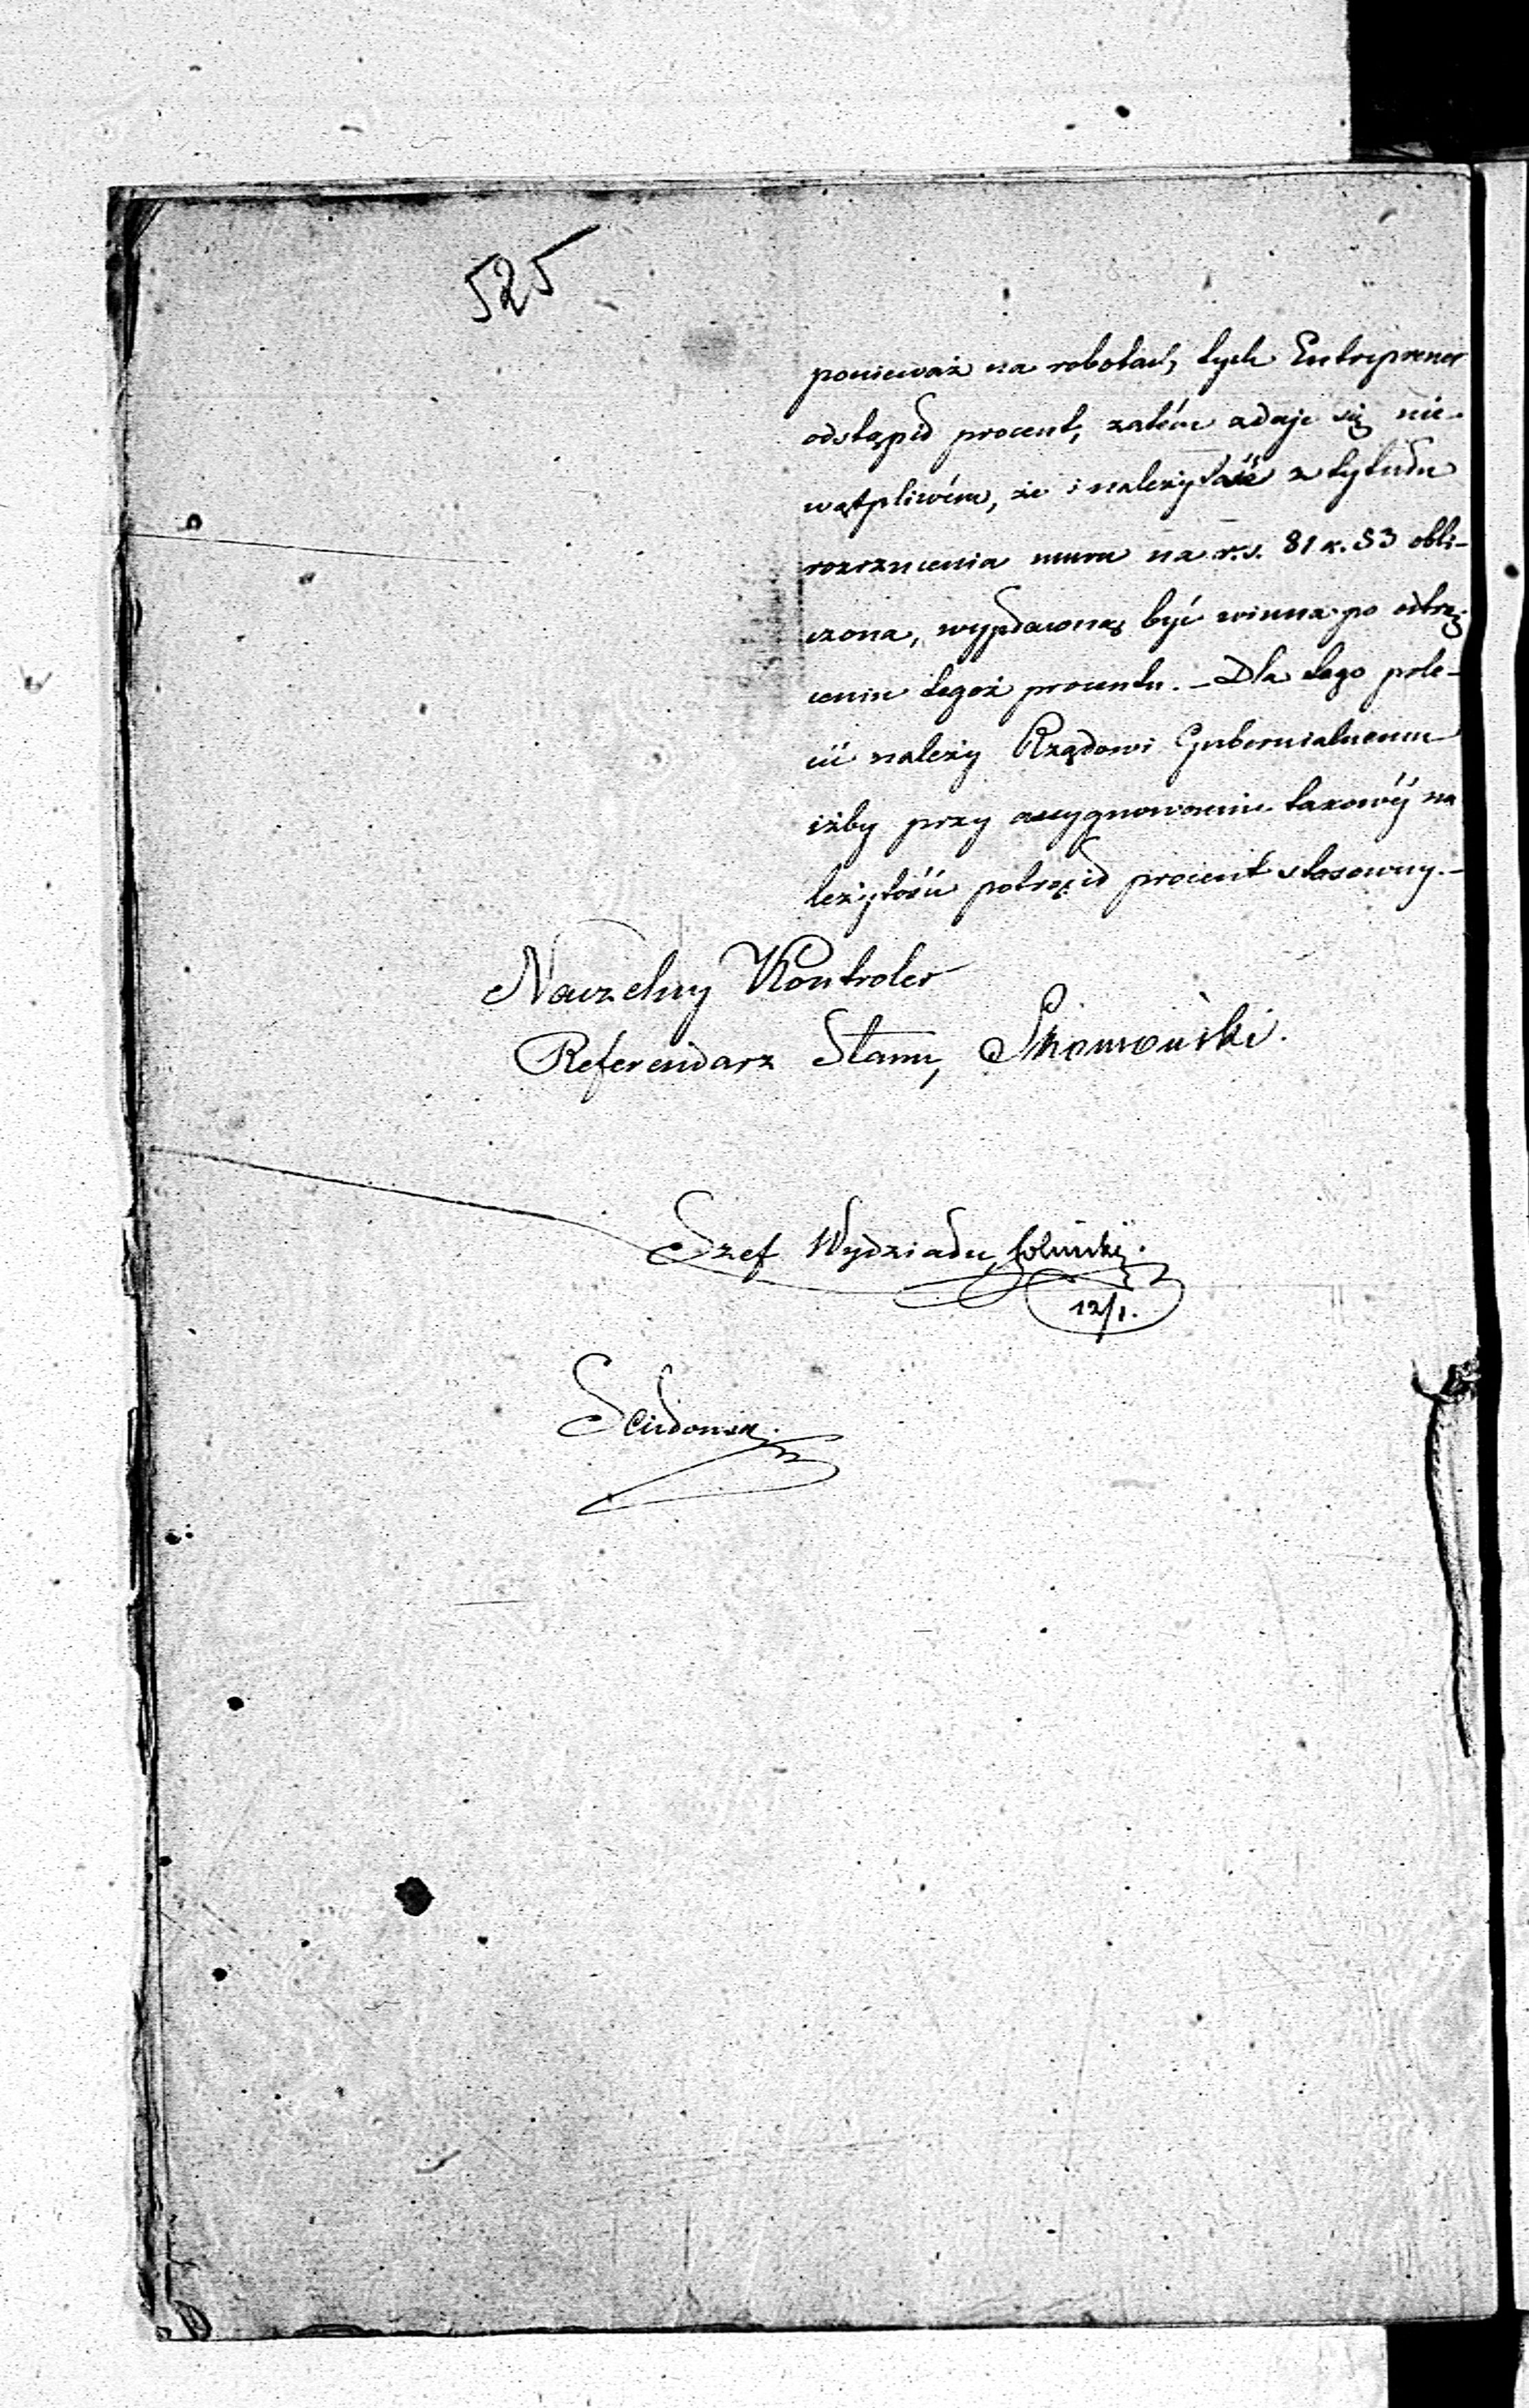 525
ponieważ na robotach tych Entreprener
odstąpił procent, zatém zdaje się nie-
wątpliwém, że i należytość z tytułu
rozrzucenia muru na r.s. 81 k. 83 obli-
czona, wypłaconą być winna po odtrą-
ceniu tegoż procentu. – Dla tego pole-
cić należy Rządowi Gubernialnemu
iżby przy assygnowaniu taxowéj na
leżytości potrącił procent stosowny. –
Naczelny Kontroler
Referendarz Stanu,
Szef Wydziału,
12/1.